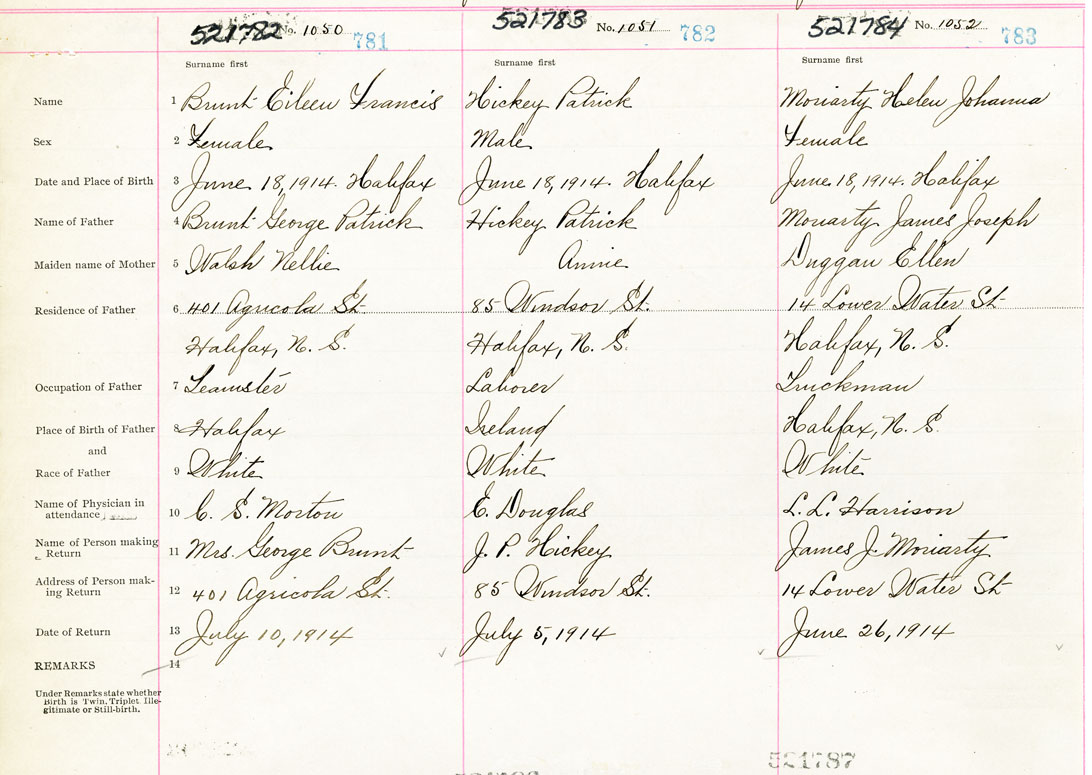 521782 No. 1050 781
521783 No. 1051 782
521784 No. 1052 783
Surname first Surname first Surname first
Name 1 Brunt Eileen Francis Hickey Patrick Moriarty Helen Johanna
Sex 2 Female Male Female
Date and Place of Birth 3 June 18, 1914. Halifax June 18, 1914. Halifax June 18, 1914. Halifax
Name of Father 4 Brunt George Patrick Hickey Patrick Moriarty James Joseph
Maiden name of Mother 5 Walsh Nellie Annie Duggan Ellen
Residence of Father 6 401 Agricola St. 85 Windsor St. 14 Lower Water St.
Halifax, N. S. Halifax, N. S. Halifax, N. S.
Occupation of Father 7 Teamster Laborer Truckman
Place of Birth of Father 8 Halifax Ireland Halifax, N. S.
and
Race of Father 9 White White White
Name of Physician in
attendance 10 C. S. Morton E. Douglas L. L. Harrison
Name of Person making
Return 11 Mrs. George Brunt J. P. Hickey James J. Moriarty
Address of Person mak-
ing Return 12 401 Agricola St. 85 Windsor St. 14 Lower Water St
Date of Return 13 July 10, 1914 July 5, 1914 June 26, 1914
REMARKS 14
Under Remarks state whether
Birth is Twin, Triplet Ille-
gitimate or Still-birth.
521787